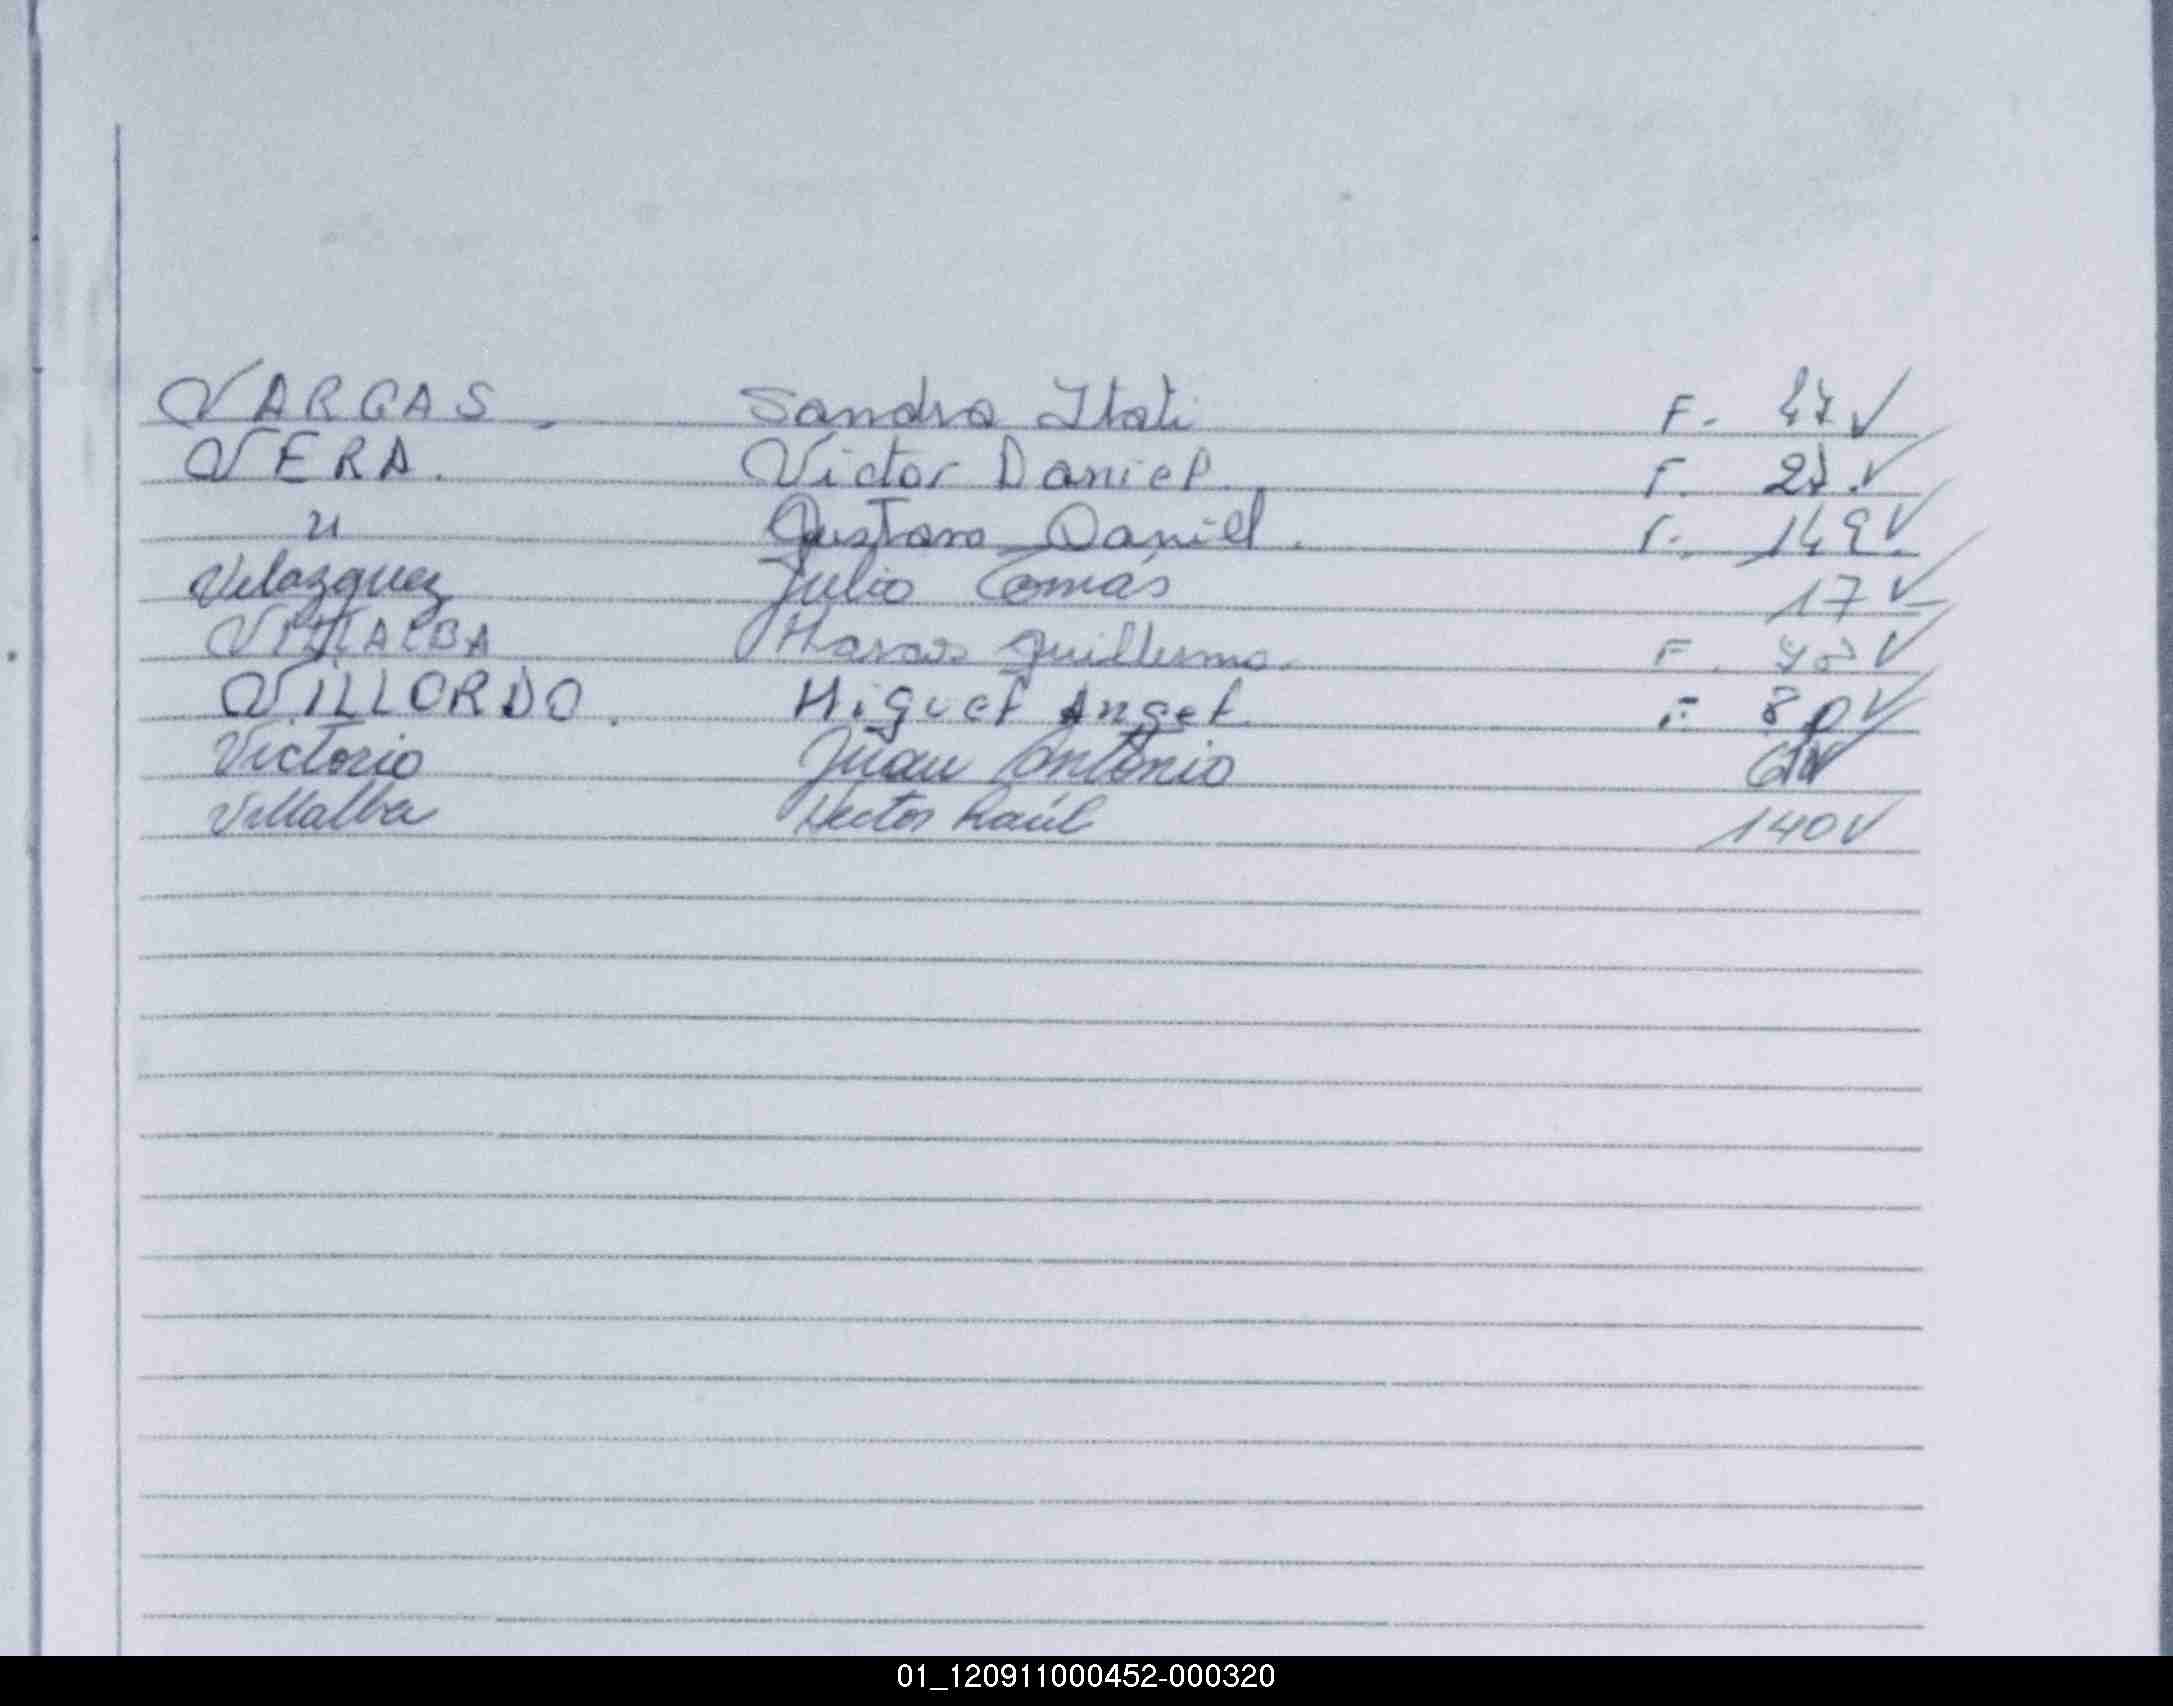 VARGAS. Sandra Itati F. 47 ✓
VERA. Victor Daniel. F. ✓
" Gustavo Daniel. F. 149 ✓
Velazquez Julio Tomás 17 ✓
VILLALBA Guillermo. F. ✓
VILLORDO. Miguel Angel F. 80 ✓
Victorio Juan Antonio
Villalba Hector Raúl 140 ✓
01_120911000452-000320